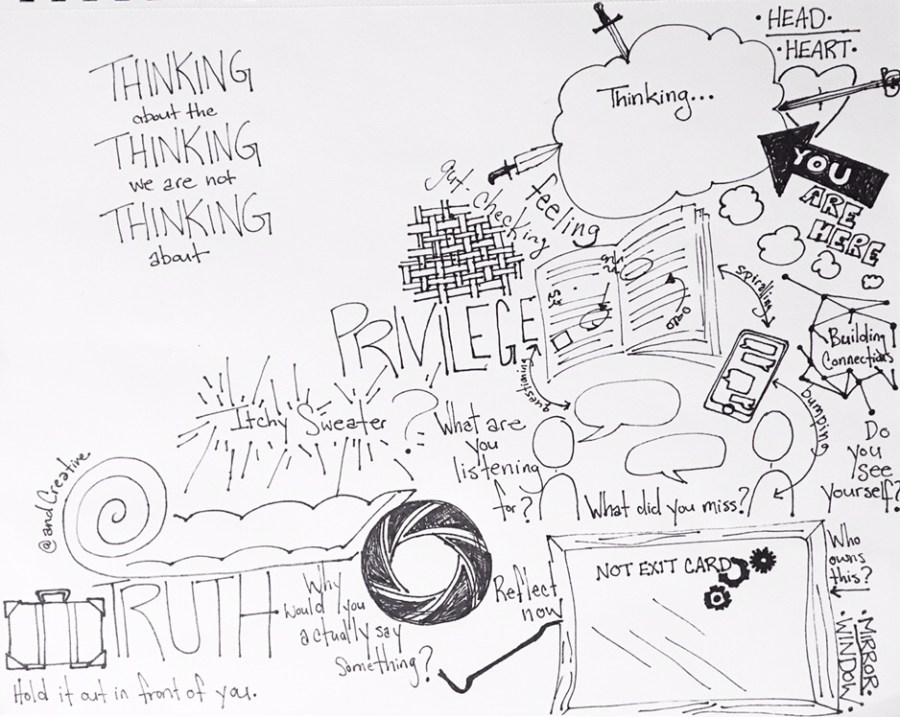 THINKING
about the
THINKING
we are not
THINKING
about
Thinking...
• HEAD •
• HEART •
YOU
ARE
HERE
gut
checking
feeling
PRIVILEGE
spiralling
questioning
bumping
Building
Connections
Itchy Sweater?
What are
you
listening
for?
What did you miss?
Do
you
see
yourself?
@andCreative
TRUTH
Hold it out in front of you.
Why
would you
actually say
something?
Reflect
now
NOT EXIT CARD
Who
owns
this?
• MIRROR •
• WINDOW •